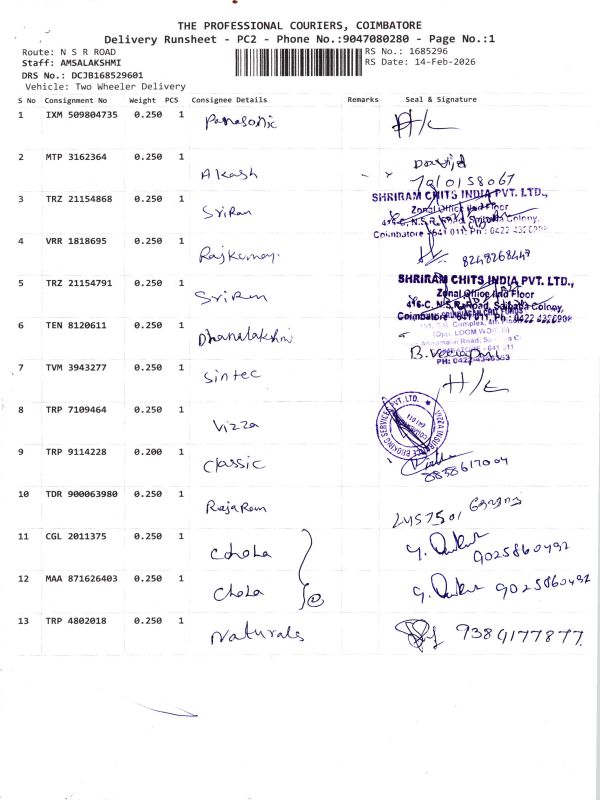 THE PROFESSIONAL COURIERS, COIMBATORE
Delivery Runsheet - PC2 - Phone No.:9047080280 - Page No.:1
Route: N S R ROAD RS No.: 1685296
Staff: AMSALAKSHMI RS Date: 14-Feb-2026
DRS No.: DCJB168529601
Vehicle: Two Wheeler Delivery
S No Consignment No Weight PCS Consignee Details Remarks Seal & Signature
1 IXM 509804735 0.250 1 Panasonic
2 MTP 3162364 0.250 1 Akash
7810158067
3 TRZ 21154868 0.250 1 Sriram
SHRIRAM CHITS INDIA PVT. LTD.,
Zonal Office IInd Floor
416-C, N.S.R. Road, Saibaba Colony,
Coimbatore - 641 011. Ph: 0422
4 VRR 1818695 0.250 1 Rajkumar
8248268447
5 TRZ 21154791 0.250 1 Sriram
SHRIRAM CHITS INDIA PVT. LTD.,
Zonal Office IInd Floor
416-C, N.S.R. Road, Saibaba Colony,
Coimbatore - 641 011. Ph: 0422
6 TEN 8120611 0.250 1 Dhanalakshmi
7 TVM 3943277 0.250 1 Sintec
8 TRP 7109464 0.250 1 Vizza
VIZZA INSURANCE BROKING SERVICES PVT. LTD.
9 TRP 9114228 0.200 1 Classic
8838617004
10 TDR 900063980 0.250 1 Rajaram
11 CGL 2011375 0.250 1 Chola
9025860492
12 MAA 871626403 0.250 1 Chola
9025860492
13 TRP 4802018 0.250 1 Naturals 9384177877